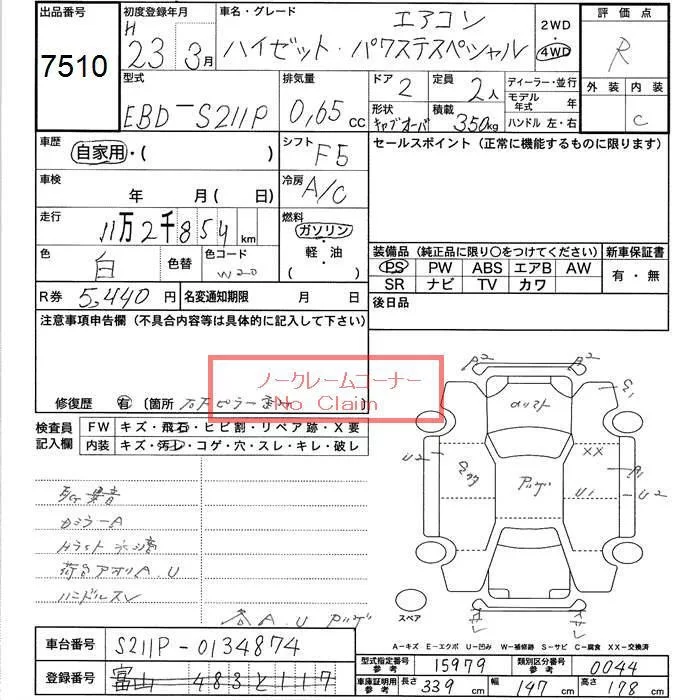 出品番号
7510
初度登録年月
H
23 3月
車名・グレード
エアコン
ハイゼット・パワステスペシャル
2WD
・
4WD
評価点
R
外装 内装
C
型式
EBD-S211P
排気量
0,65 cc
ドア
2
定員
2人
ディーラー・並行
モデル年式 年
ハンドル 左・右
形状
キャブオーバ
積載
350kg
車歴
自家用・( )
シフト
F5
セールスポイント(正常に機能するものに限ります)
車検
年 月( 日)
冷房
A/C
走行
11万2千854km
燃料
ガソリン
・
軽・油
・
( )
色
白
色替
色コード
W20
装備品(純正品に限り○をつけてください)
新車保証書
PS PW ABS エアB AW
SR ナビ TV カワ
有・無
R券 5,440円
名変通知期限 月 日
後日品
注意事項申告欄(不具合内容等は具体的に記入して下さい)
ノークレームコーナー
No Claim
修復歴 有 (箇所 )
検査員
記入欄
FW キズ・飛石・ヒビ割・リペア跡・X要
内装 キズ・汚レ・コゲ・穴・スレ・キレ・破レ
カミラーA
荷台アオリA.U
ハンドルスレ
各A.U
A2 A2
U2
XX
A1
U1
U2
スペア
A-キズ E-エクボ U-凹み W-補修跡 S-サビ C-腐食 XX-交換済
車台番号
S211P-0134874
登録番号
富山 483と117
型式指定番号
参考
15979
類別区分番号
参考
0044
車庫証明用
参考
長さ 339cm
幅 147cm
高さ 178cm